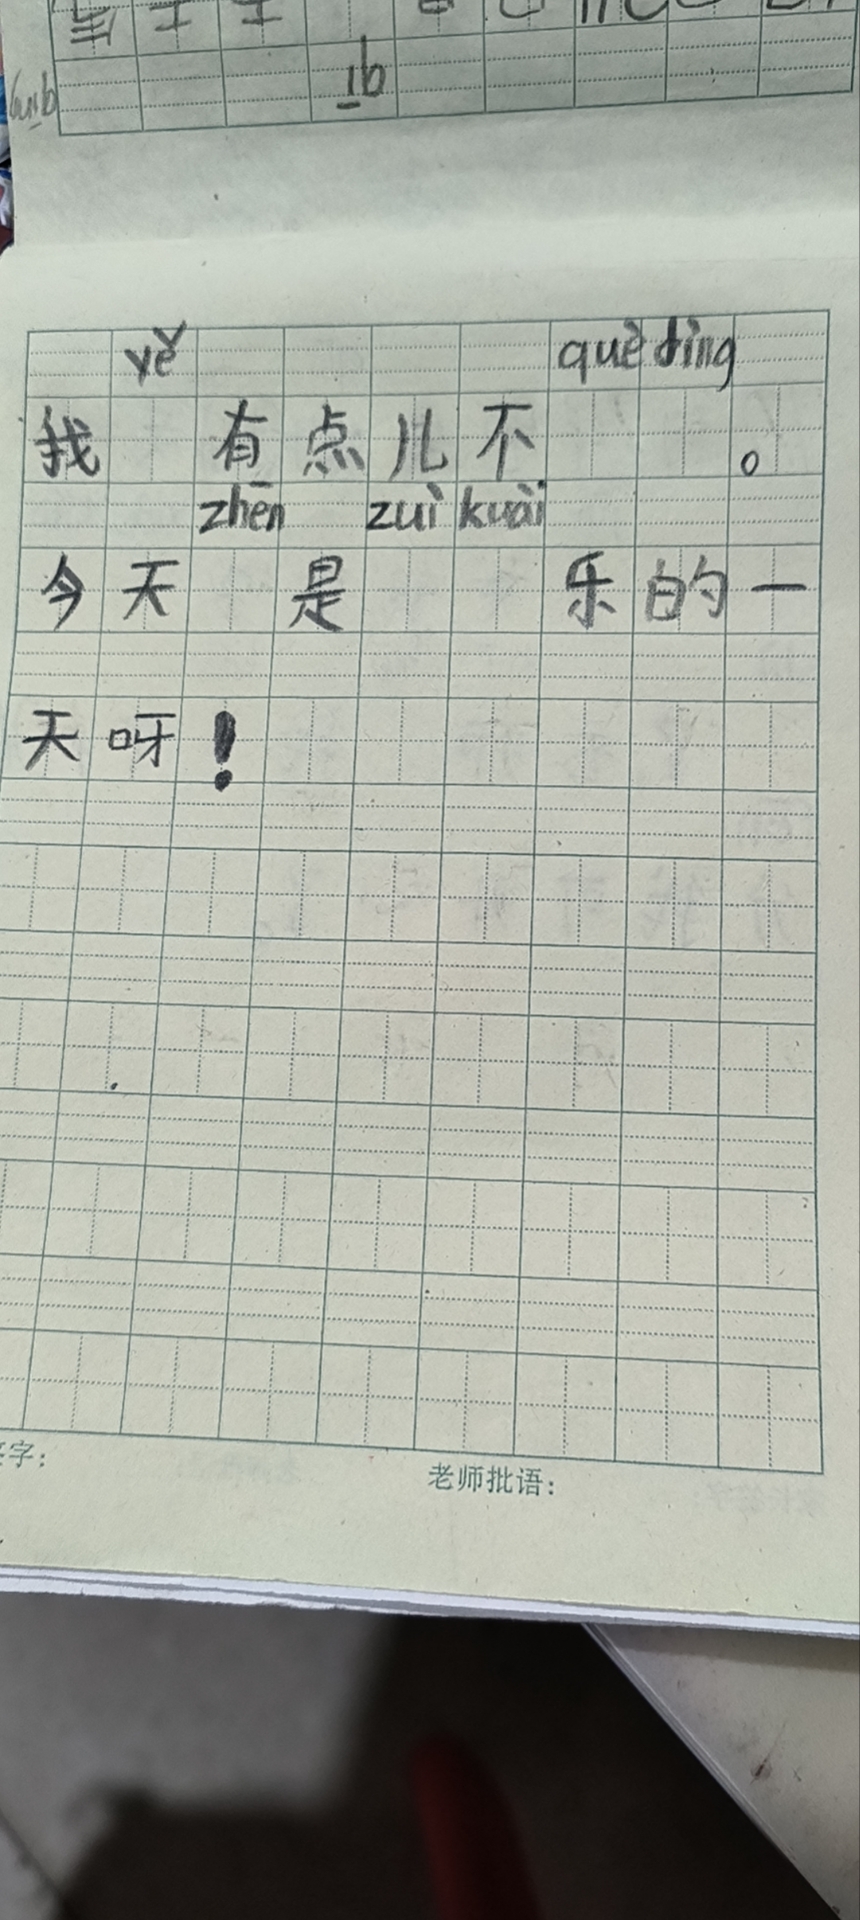 ib
yě què dìng
我 有点儿不 。
zhēn zuì kuài
今天 是 乐的一
天呀！
字：
老师批语：